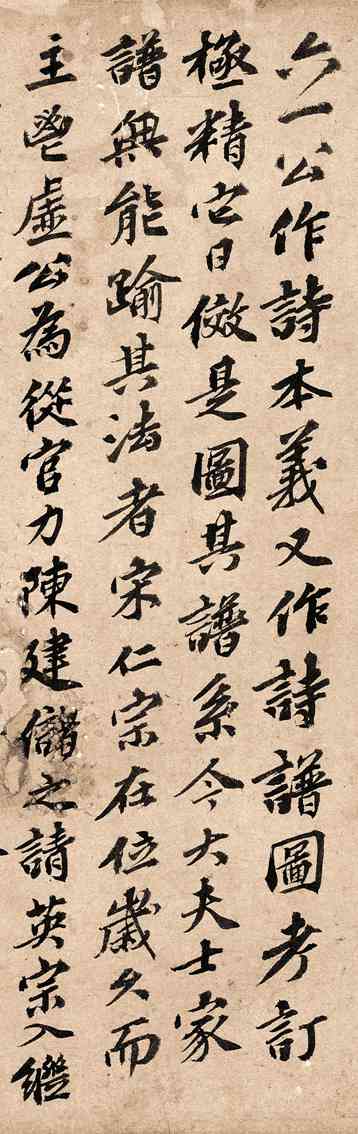 六一公作詩本義又作詩譜圖考訂
極精它日倣是圖其譜系今大夫士家
譜無能踰其法者宋仁宗在位歲久而
主鬯虛公為從官力陳建儲之請英宗入繼